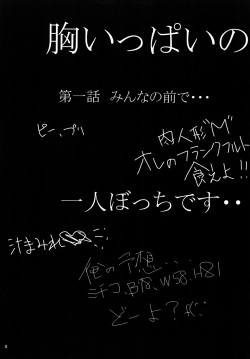 胸いっぱいの
第一話 みんなの前で・・・
ピー、プリ
肉人形"M"
オレのフランクフルト
食えよ!!
一人ぼっちです・・
汁まみれ
俺の予想...
ミチコ、B78、W58、H81
どーよ?が、